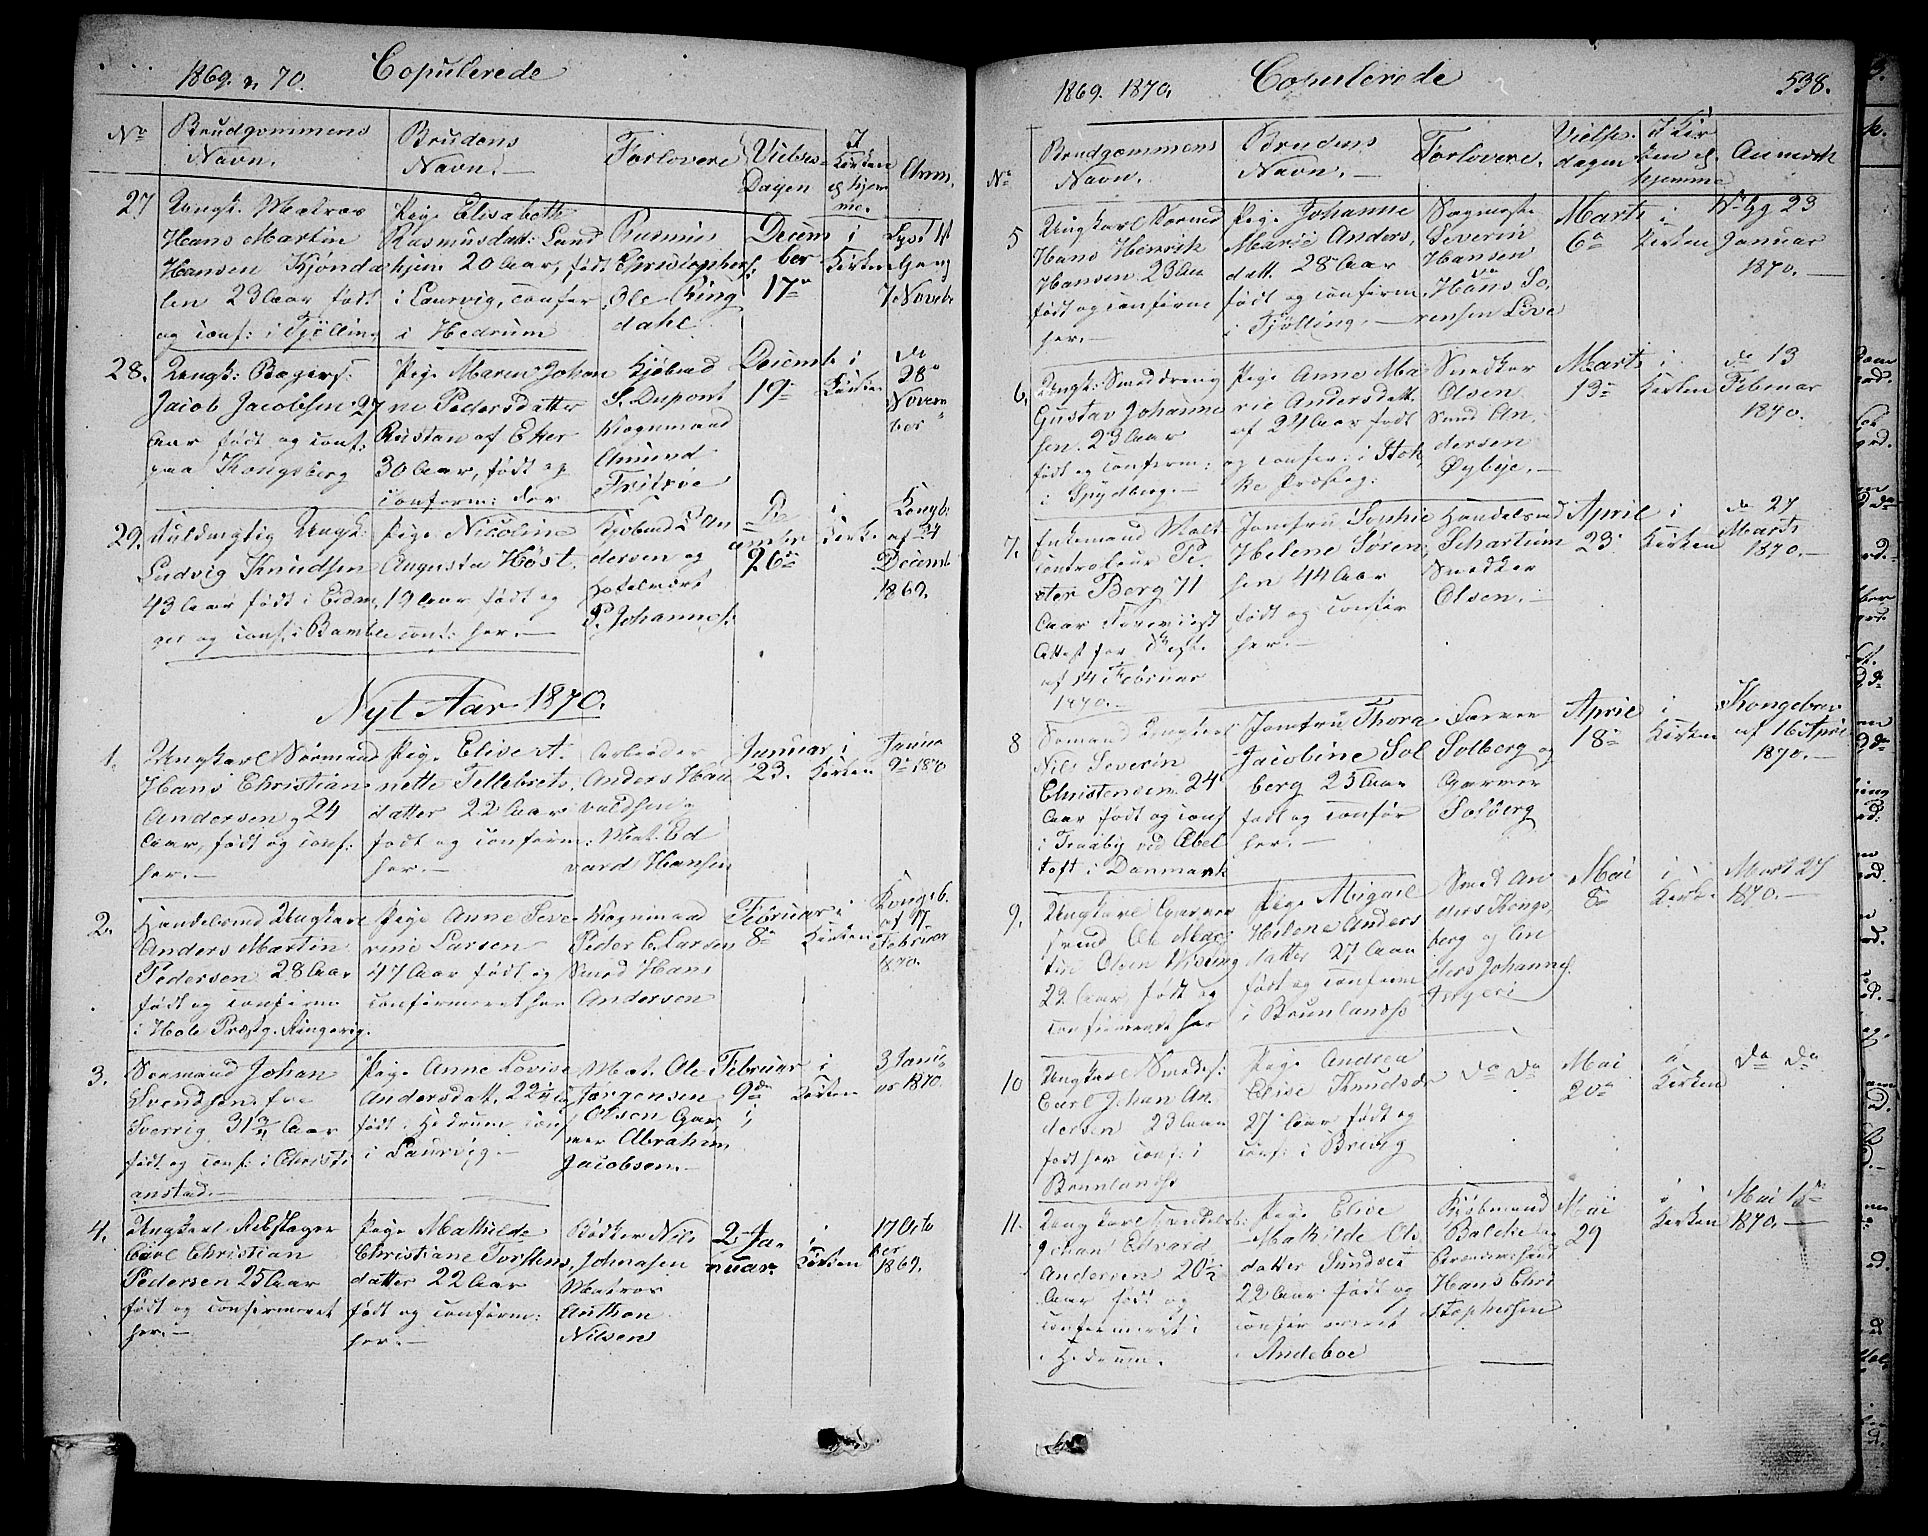 1869. & 70.
Copulerede
No
Brudgommens
Navn.
Brudens
Navn.
Forlovere
Vielses-
Dagen
I
Kirken
el hjem
me.
Anm.
27
Ungk. Matros
Hans Martin
Hansen Kjønda
len 23 Aar født
og conf: i Tjølling
Pige Elisabeth
Rasmusdatt: Land
hjem 20 Aar, født
i Laurvig, confer
i Hedrum
Rasmus
Christophers:
Ole Ring
dahl
Decem
ber
17de
i
Kirken
Lyst 1st
Gang
7 Novebr
28.
Ungk: Bagers:
Jacob Jacobsen 27
Aar født og conf:
paa Kongsberg
Pige Maren Johan
ne Pedersdatter
Rustan af Eker
30 Aar, født og
conform: der
Kjøbmd
S. Dupont
Vognmand
Amund
Fritzøe
Decemb
19de
i
Kirken
do
28de
Novem
ber
29.
Fuldmgtig Ungk:
Ludvig Knudsen
43 Aar født i Eidan
ger og conf. i Bamble
Pige Nicoline
Augusta Høst,
19 Aar født og
conf: her.
Kjøbmd An
dersen og
Hotelvært
P. Johannes:
De
cember
26de
i
Kirke
Kongb:
af 24
Decemb
1869.
Nyt Aar 1870.
1.
Ungkarl Sørmand
Hans Christian
Andersen, 24
Aar, født og conf:
her.
Pige Elive A.
nette Tellefsets
datter 22 Aar
født og conform:
her.
Arbeider
Anders Hau
valdsen
Mat. Ed
vard Hansen
Januar
23.
i
Kirken
Janua
9de 1870
2.
Handelsmd Ungkarl
Anders Martin
Pedersen 28 Aar
født og confirm
i Hole Præstg. Ringerig.
Pige Anne Seve
rine Larsen
47 Aar født og
confirmeret her
Vognmand
Peder C. Larsen
Smed Hans
Andersen
Februar
8de
i
Kirken
Kongeb.
af 17
Februar
1870.
3.
Sømand Johan
Svendsen fra
Sverrig, 31 Aar
født og conf: i Christi
anstad.
Pige Anne Lovise
Andersdatt. 22
født i Hedrum conf
i Laurvig.
Mat. Ole
Jørgensen
Olsen Gar
ver Abraham
Jacobsen.
Februar
9de
i
Kirken
3 Janu
ar 1870.
4.
Ungkarl Rebslager
Carl Christian
Pedersen 25 Aar
født og confirmeret
her.
Pige Mathilde
Christiane Torstens
datter 22 Aar
født og conform:
her.
Bødker Nils
Johnasen
Matros
Anthon
Nilsen
2 Ja-
nuar
i
Kirken
17 Octo
ber
1869.
1869. 1870.
Copulerede
538.
No
Brudgommens
Navn.
Brudens
Navn.
Forlovere.
Vielses.
dagen
I Kir
ken el.
hjemme
Anmærk
5
Ungkarl Sørmd
Hans Henrik
Hansen 23 Aar
født og confirm
her.
Pige Johanne
Marie Anders,
datt. 28 Aar
født og confirm
i Tjølling.
Sagmest
Severin
Hansen
Hans So,
rensen Live
Marts
6de
i
Kirken
23
Januar
1870.
6.
Ungk: Smeddreng
Gustav Johanne
sen. 23 Aar
født og conferm:
i Spydberg.
Pige Anne Ma
rie Andersdatt.
af 24 Aar født
og confer: i Stok,
ke Præstg:
Snedker
Olsen
Smd An,
dersen
Øybye.
Marts
13de
i
Kirken
do 13
Februar
1870.
7.
Enkemand Malt
controleur Pe
ter Berg 71
Aar Foreviist
Attest fra Skifte
af 14 Februar
1870.
Jomfru Sophie
Helene Søren,
sen 44 Aar
født og confer
her.
Handelsmd
Schartum
Snedker
Olsen.
April
23
i
Kirken
do 27
Marts
1870.
8
Sømand Ungkarl
Nils Severin
Christensen 24
Aar født og conf
i Traaby ved Æbel
toft i Danmark
Jomfru Thora
Jacobine Sol
berg 23 Aar
født og confer
her.
Farver
Solberg og
Garver
Solberg
April
18de
i
Kirken
Kongebrev
af 16 April
1870.
9.
Ungkarl Garver
svend Ole Mar
tin Olsen Wising
22 Aar, født og
confirmeret her
Pige Abigael
Helene Anders
datter 27 Aar
født og confirm
i Brunlands
Smed An
ders Kongs,
berg og An
ders Johannes.
Mai
8de
i
Kirke
Mart 27
1870.
10
Ungkarl Smeds:
Carl Johan An.
dersen 23 Aar
født her conf: i
Brunlands
Pige Andrea
Elise Knudsdr
27 Aar født og
conf: i Brevig
do do
Mai
20de
i
Kirken
do do
11.
Ungkarl Handelsb:
Johan Edvard
Andersen 20 1/2
Aar født og
confirmeret i
Hedrum.
Pige Elise
Mathilde Ols
datter Sundset
22 Aar født og
confermeret
i Andeboe
Kjøbmand
Balche og
Hans Chri
stophersen
Mai
29
i
Kirken
Mai 1ste
1870.